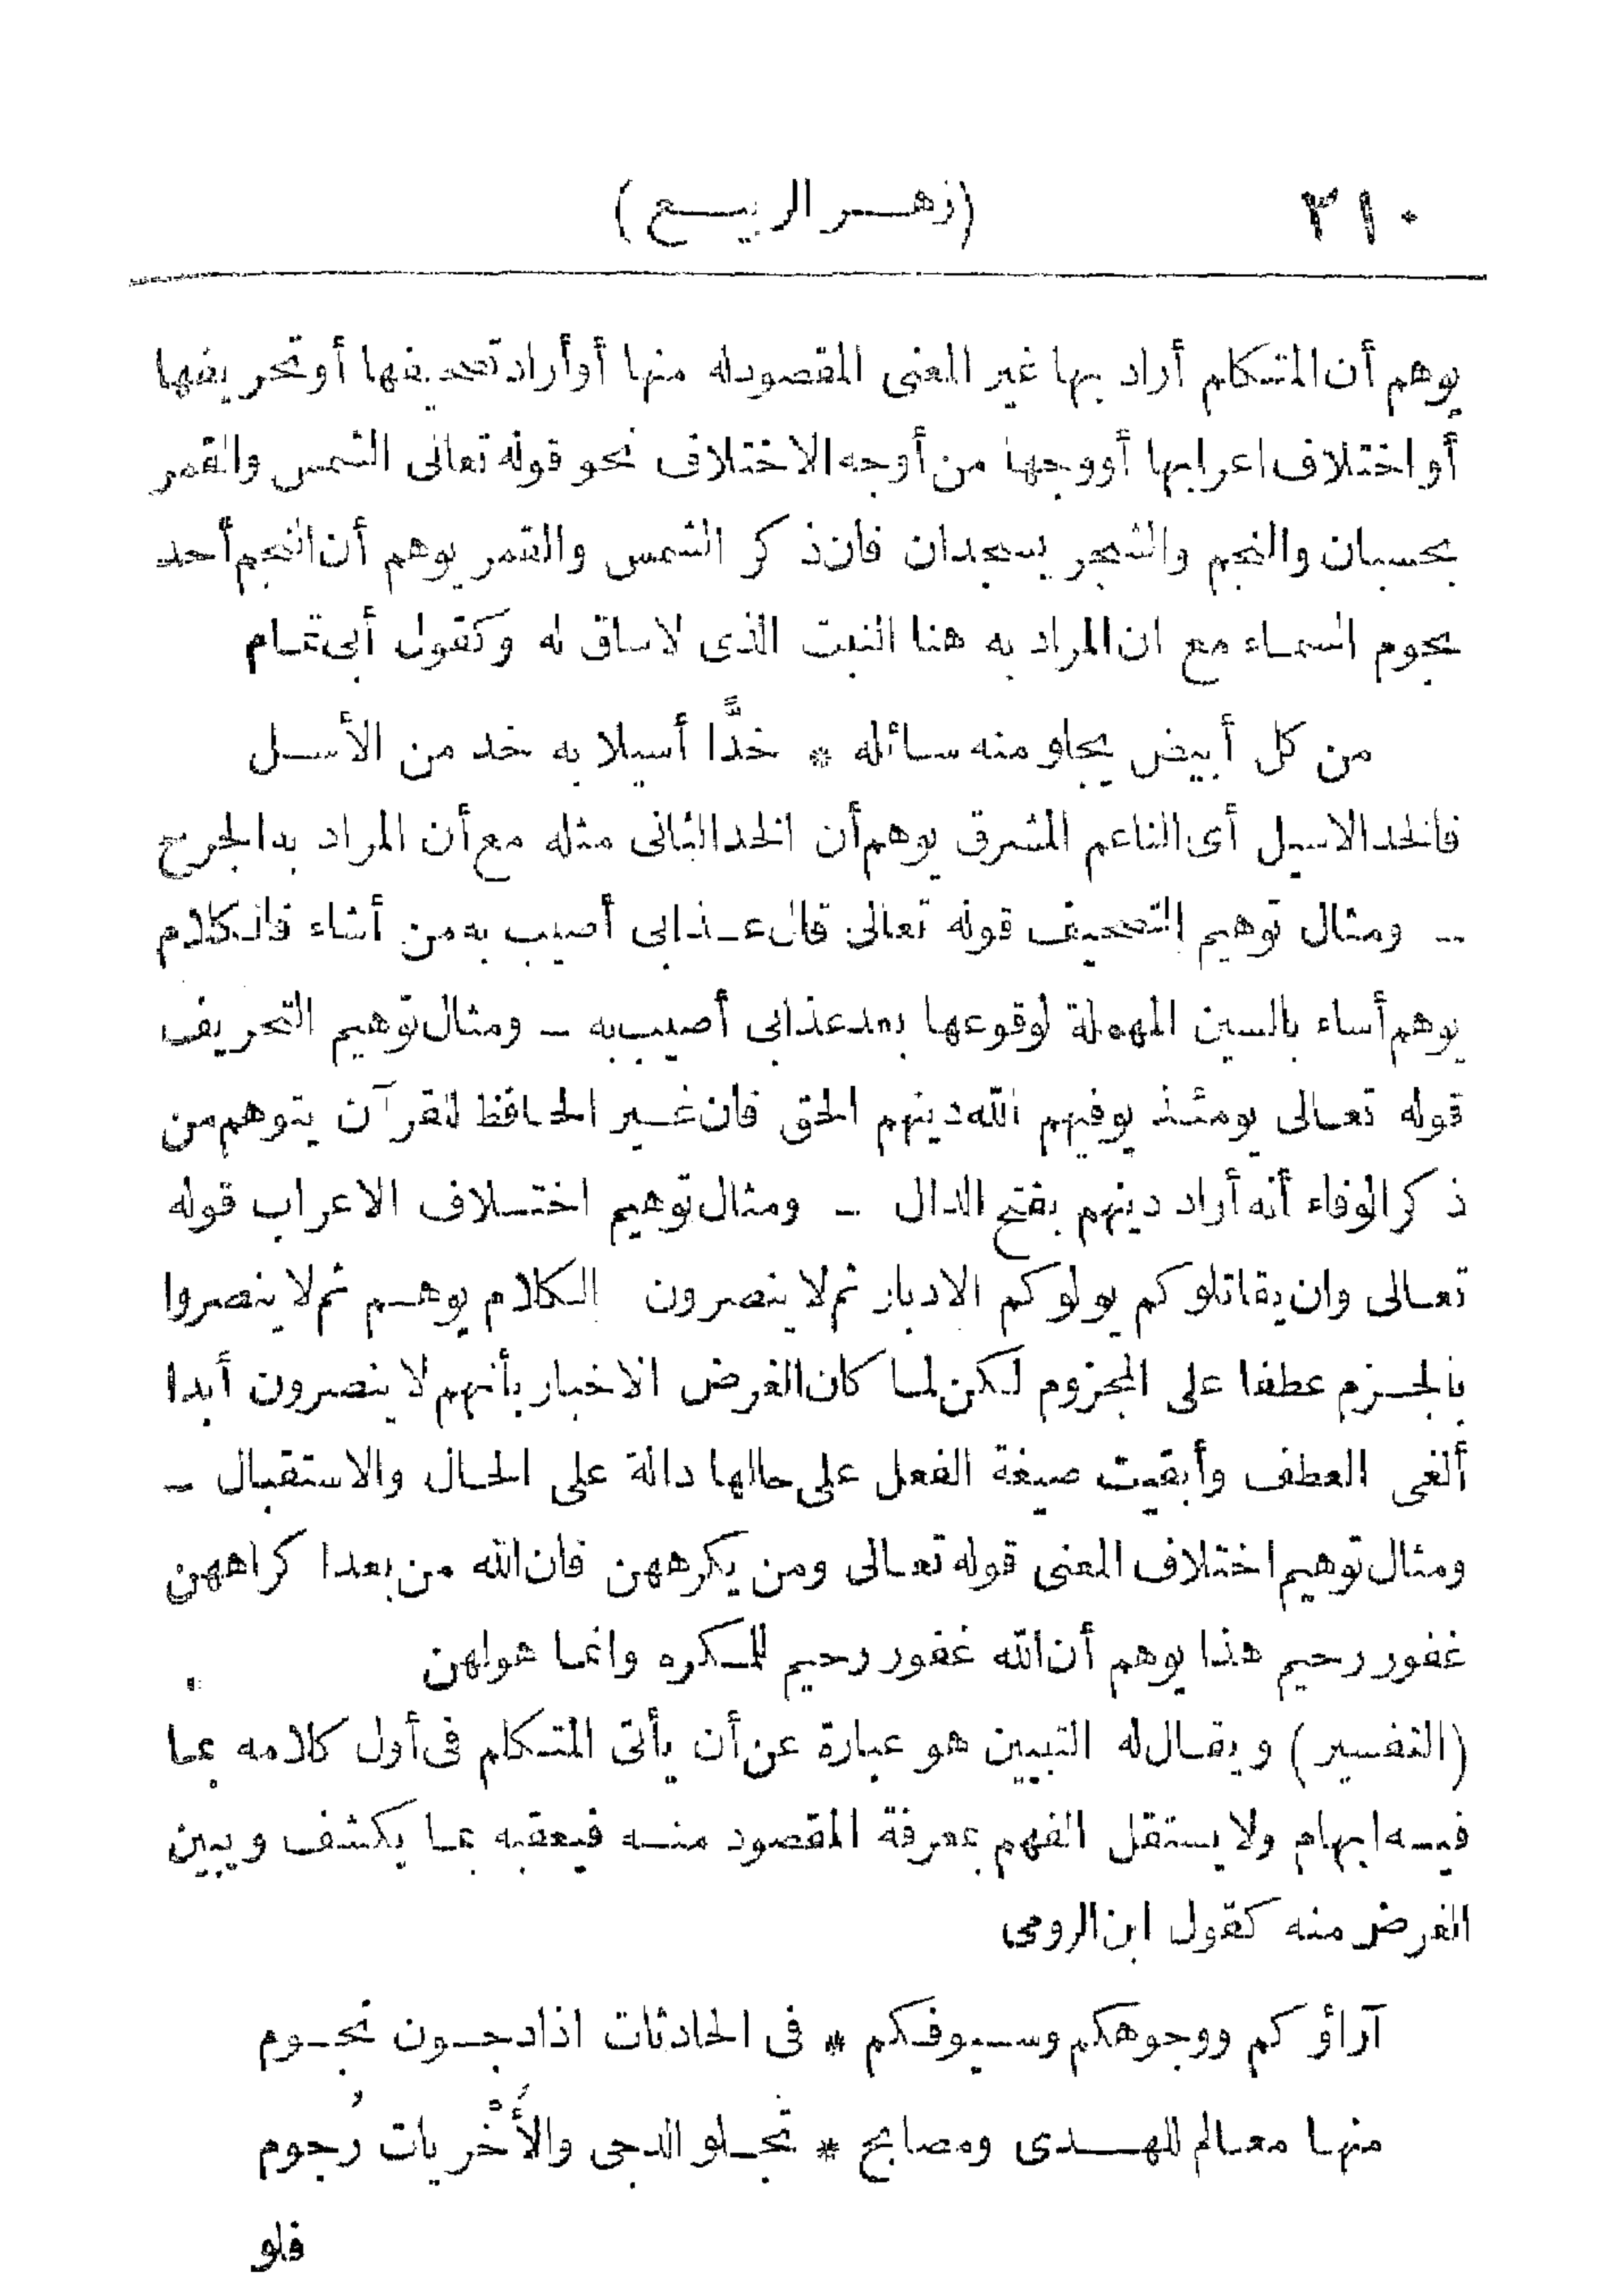 ٣١٠ (زهر الربيع)
يوهم أن المتكلم أراد بها غير المعنى المقصود له منها أو أراد تصحيفها أو تحريفها
أو اختلاف اعرابها أو وجها من أوجه الاختلاف نحو قوله تعالى الشمس والقمر
بحسبان والنجم والشجر يسجدان فان ذكر الشمس والقمر يوهم أن النجم أحد
نجوم السماء مع ان المراد به هنا النبت الذى لا ساق له وكقول أبى تمام
من كل أبيض يجلو منه سائله * خدًّا أسيلا به خد من الأسل
فالخد الاسيل أى الناعم المشرق يوهم أن الخد الثانى مثله مع أن المراد به الجرح
ـ ومثال توهيم التصحيف قوله تعالى قال عذابى أصيب به من أشاء فالكلام
يوهم أساء بالسين المهملة لوقوعها بعد عذابى أصيب به ـ ومثال توهيم التحريف
قوله تعالى يومئذ يوفيهم الله دينهم الحق فان غير الحافظ للقرآن يتوهم من
ذكر الوفاء أنه أراد دينهم بفتح الدال ـ ومثال توهيم اختلاف الاعراب قوله
تعالى وان يقاتلوكم يولوكم الادبار ثم لا ينصرون الكلام يوهم ثم لا ينصروا
بالجزم عطفا على المجزوم لكن لما كان الغرض الاخبار بأنهم لا ينصرون أبدا
ألغى العطف وأبقيت صيغة الفعل على حالها دالة على الحال والاستقبال ـ
ومثال توهيم اختلاف المعنى قوله تعالى ومن يكرههن فان الله من بعد اكراههن
غفور رحيم هذا يوهم أن الله غفور رحيم للمكره وانما هو لهن
(التفسير) ويقال له التبيين هو عبارة عن أن يأتى المتكلم فى أول كلامه بما
فيه ابهام ولا يستقل الفهم بمعرفة المقصود منه فيعقبه بما يكشف ويبين
الغرض منه كقول ابن الرومى
آراؤكم ووجوهكم وسيوفكم * فى الحادثات اذا دجون نجوم
منها معالم للهدى ومصابح * تجلو الدجى والأُخْريات رُجوم
فلو